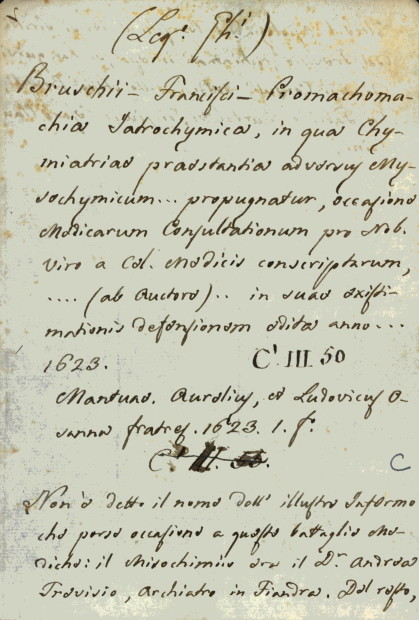 (Leg.ʳ Phⁱ)
Bruschii – Francisci – Promachoma-
chia Iatrochymica, in qua Chy-
miatriae praestantia adversus My-
sochymicum... propugnatur, occasione
Medicarum Consultationum pro Nob.
viro a Cel. Medicis conscriptarum,
.... (ab Auctore).. in suae existi-
mationis defensionem edita anno...
1623.
C¹ III 50
Mantuae. Aurelius, et Ludovicus O-
sanna fratres. 1623. 1. f.
C. II. 55.
C
Non è detto il nome dell' illustre Infermo
che porse occasione a queste battaglie Me-
diche: il Misochimiis era il Dʳ Andrea
Trevisio, Archiatro in Fiandra. Del resto,